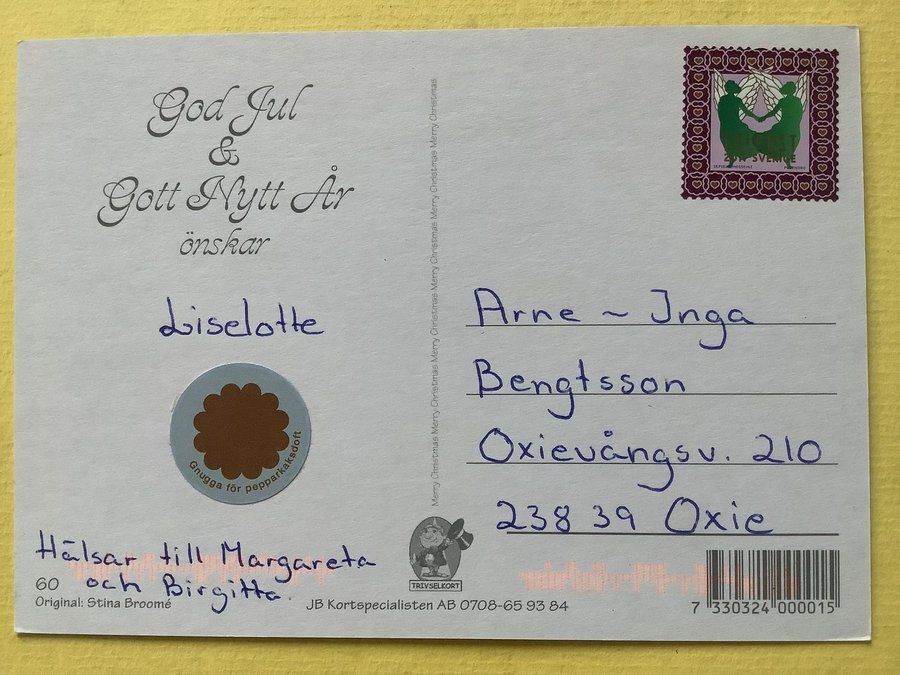 God Jul
&
Gott Nytt År
önskar
Liselotte
Gnugga för pepparkaksdoft
Hälsar till Margareta
och Birgitta.
60
Original: Stina Broomé
Merry Christmas Merry Christmas Merry Christmas Merry Christmas Merry Christmas Merry Christmas
TRIVSELKORT
JB Kortspecialisten AB 0708-65 93 84
SVERIGE
Arne ~ Inga
Bengtsson
Oxievångsv. 210
238 39 Oxie
7 330324 000015